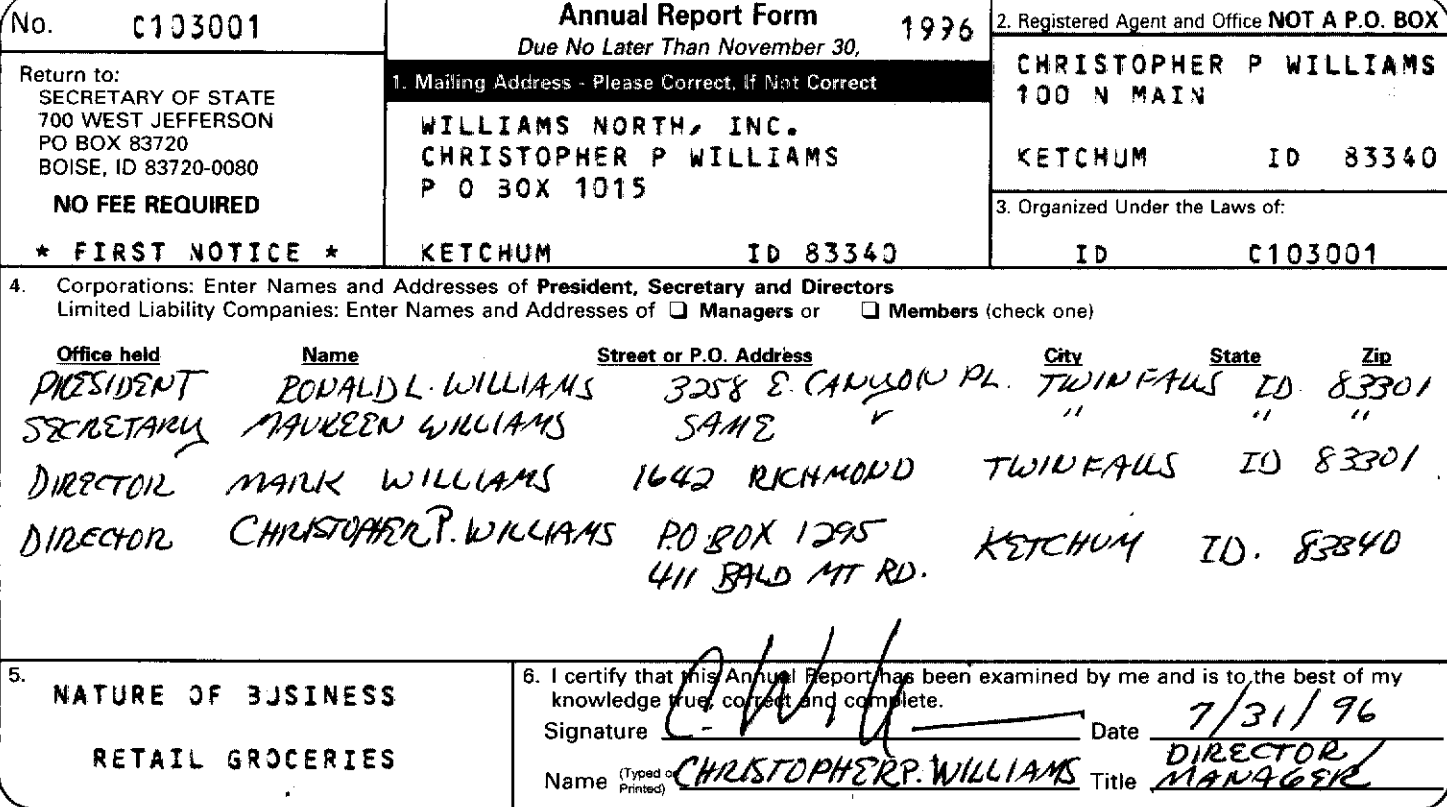 No. C103001
Annual Report Form 1996
Due No Later Than November 30,
Return to:
SECRETARY OF STATE
700 WEST JEFFERSON
PO BOX 83720
BOISE, ID 83720-0080
NO FEE REQUIRED
* FIRST NOTICE *
1. Mailing Address - Please Correct, If Not Correct
WILLIAMS NORTH, INC.
CHRISTOPHER P WILLIAMS
P O BOX 1015
KETCHUM ID 83340
2. Registered Agent and Office NOT A P.O. BOX
CHRISTOPHER P WILLIAMS
100 N MAIN
KETCHUM ID 83340
3. Organized Under the Laws of:
ID C103001
4. Corporations: Enter Names and Addresses of President, Secretary and Directors
Limited Liability Companies: Enter Names and Addresses of ❑ Managers or ❑ Members (check one)
Office held Name Street or P.O. Address City State Zip
PRESIDENT RONALD L. WILLIAMS 3258 E. CANYON PL. TWIN FALLS ID. 83301
SECRETARY MAUREEN WILLIAMS SAME " " " "
DIRECTOR MARK WILLIAMS 1642 RICHMOND TWIN FALLS ID 83301
DIRECTOR CHRISTOPHER P. WILLIAMS P.O. BOX 1295 KETCHUM ID. 83340
411 BALD MT RD.
5. NATURE OF BUSINESS
RETAIL GROCERIES
6. I certify that this Annual Report has been examined by me and is to the best of my
knowledge true, correct and complete.
Signature Date 7/31/96
Name (Typed or Printed) CHRISTOPHER P. WILLIAMS Title DIRECTOR/
MANAGER